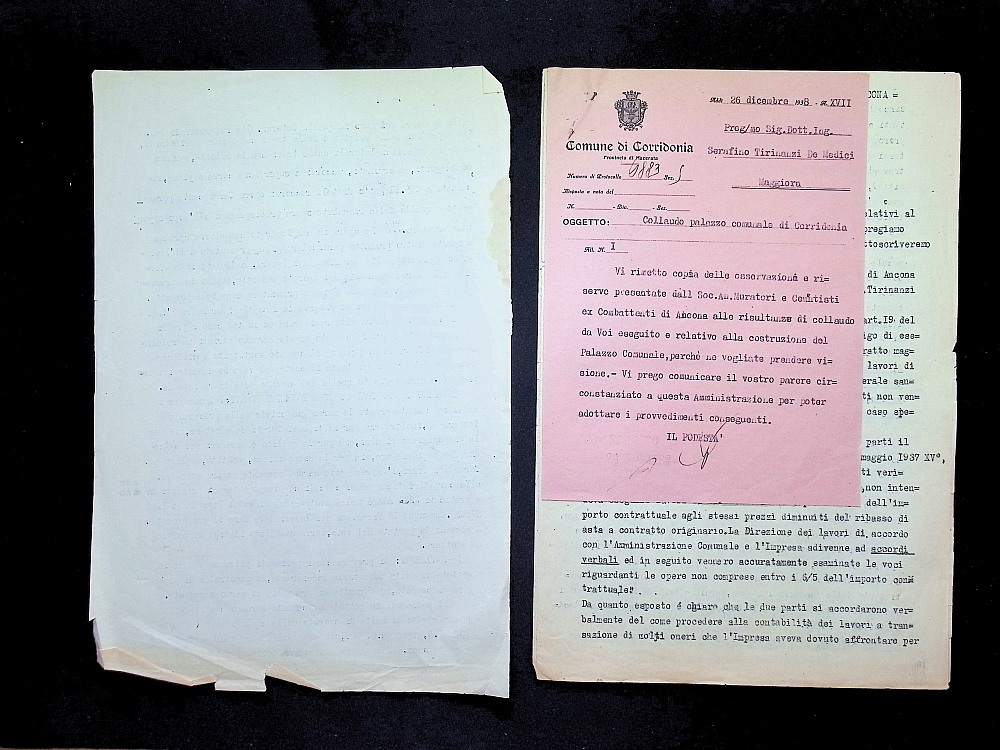 26 dicembre 1938 - A. XVII
Comune di Corridonia
Provincia di Macerata
Numero di Protocollo 9883 Sez. 5
Risposta a nota del
N. - Div. - Sez.
Preg/mo Sig.Dott.Ing.
Serafino Tirinanzi De Medici
Maggiora
OGGETTO: Collaudo palazzo comunale di Corridonia
All. N. I
Vi rimetto copia delle osservazioni e ri=
serve presentate dall Soc.An.Muratori e Cementisti
ex Combattenti di Ancona alle risultanze di collaudo
da Voi eseguito e relativo alla costruzione del
Palazzo Comunale,perché ne vogliate prendere vi=
sione.- Vi prego comunicare il vostro parere cir=
constanziato a questa Amministrazione per poter
adottare i provvedimenti conseguenti.
IL PODESTA'
CONA =
elativi al
pregiamo
ttoscriveremo
di Ancona
.Tirinanzi
art.19 del
igo di ese=
ratto mag=
lavori di
erale san=
ti non ven=
caso spe=
parti il
maggio 1937 XV°,
ti veri=
,non inten=
dell'im=
porto contrattuale agli stessi prezzi diminuiti del ribasso di
asta a contratto originario.La Direzione dei lavori di accordo
con l'Amministrazione Comunale e l'Impresa adivenne ad accordi
verbali ed in seguito vennero accuratamente esaminate le voci
riguardanti le opere non comprese entro i 6/5 dell'importo con=
trattuale".
Da quanto esposto é chiaro che le due parti si accordarono ver=
balmente del come procedere alla contabilità dei lavori a tran=
sazione di molti oneri che l'Impresa aveva dovuto affrontare per